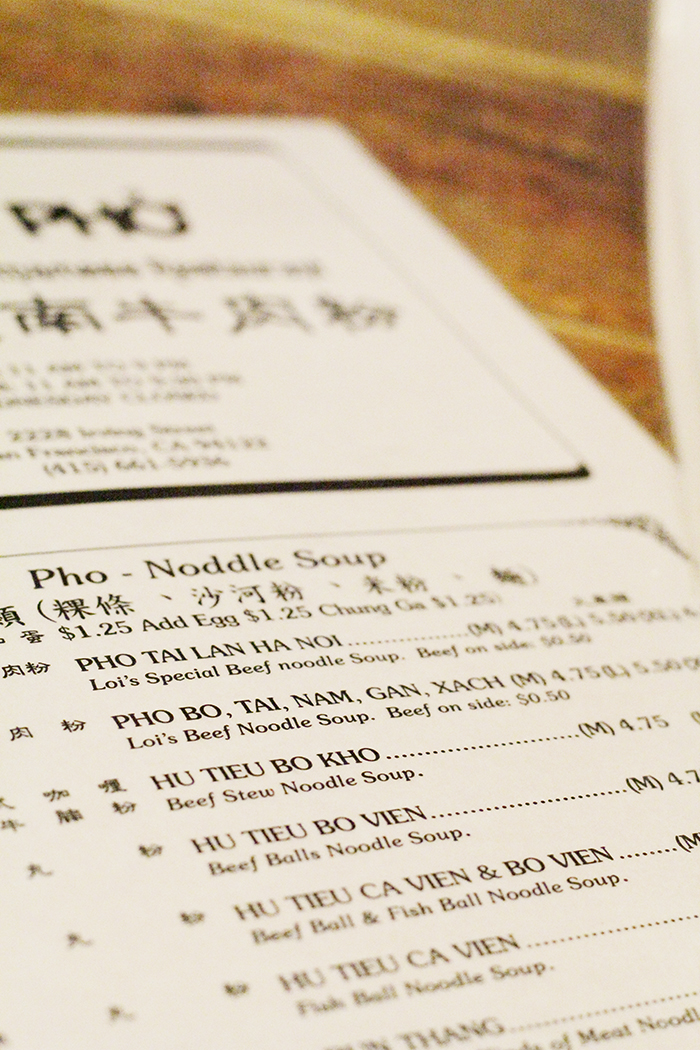 PHỞ
南牛肉粉
2228 Irving Street
San Francisco, CA 94122
(415) 661-5936
Pho - Noddle Soup
(粿條 、沙河粉 、米粉 、麵)
蛋 $1.25 Add Egg $1.25 Chung Ga $1.25
肉粉 PHO TAI LAN HA NOI ...............(M) 4.75 (L) 5.50
Loi's Special Beef noodle Soup. Beef on side: $0.50
肉 粉 PHO BO, TAI, NAM, GAN, XACH (M) 4.75 (L) 5.50
Loi's Beef Noodle Soup. Beef on side: $0.50
咖 喱 HU TIEU BO KHO ...............(M) 4.75
牛 腩 粉 Beef Stew Noodle Soup.
丸 粉 HU TIEU BO VIEN...............(M) 4.7
Beef Balls Noodle Soup.
丸 粉 HU TIEU CA VIEN & BO VIEN .......(M
Beef Ball & Fish Ball Noodle Soup.
丸 粉 HU TIEU CA VIEN ...............
Fish Ball Noodle Soup.
BUN THANG...............
of Meat Noodl